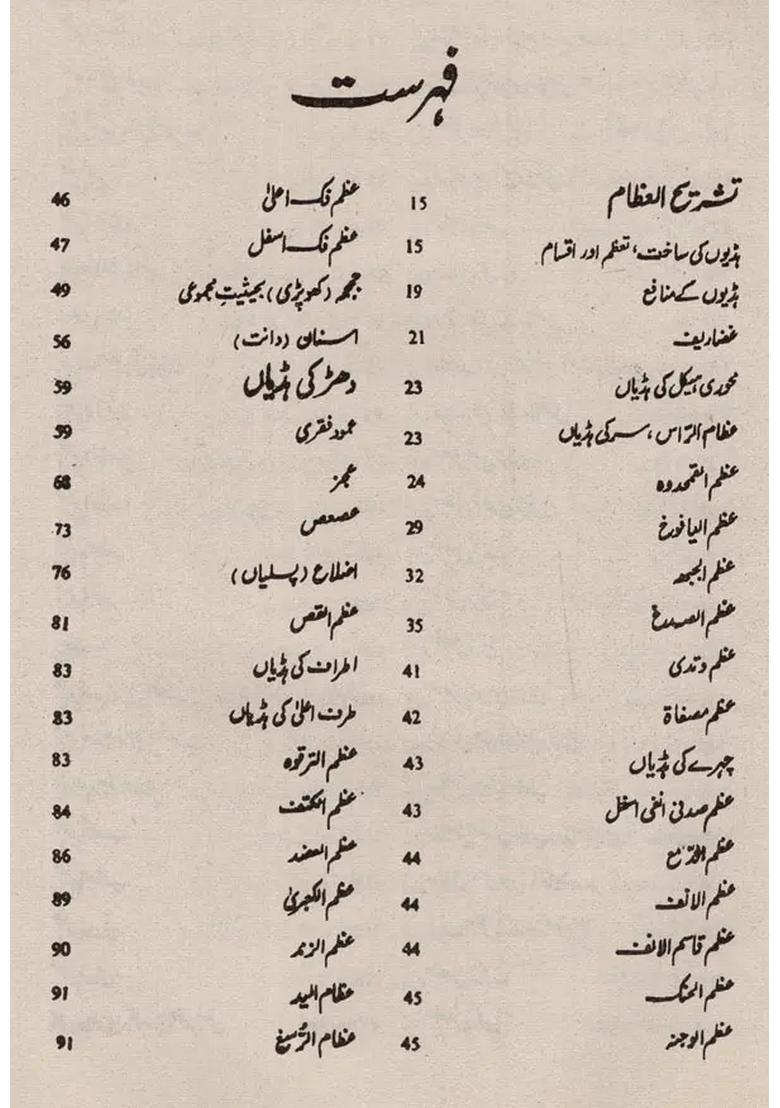 فہرست
تشریح العظام 15
ہڈیوں کی ساخت، تعظم اور اقسام 15
ہڈیوں کے منافع 19
غضاریف 21
محوری ہیکل کی ہڈیاں 23
عظام الرّاس، سر کی ہڈیاں 23
عظم القمحدوہ 24
عظم الیافوخ 29
عظم الجبھہ 32
عظم الصدغ 35
عظم وتدی 41
عظم مصفاة 42
چہرے کی ہڈیاں 43
عظم صدفی انفی اسفل 43
عظم الدّمع 44
عظم الانف 44
عظم قاسم الانف 44
عظم الحنک 45
عظم الوجنہ 45
عظم فک اعلیٰ 46
عظم فک اسفل 47
جمجمہ (کھوپڑی) بحیثیتِ مجموعی 49
اسنان (دانت) 56
دھڑ کی ہڈیاں 59
عمود فقری 59
عجز 68
عصعص 73
اضلاع (پسلیاں) 76
عظم القص 81
اطراف کی ہڈیاں 83
طرف اعلیٰ کی ہڈیاں 83
عظم الترقوہ 83
عظم الکتف 84
عظم العضد 86
عظم الکعبریٰ 89
عظم الزند 90
عظام الید 91
عظام الرُّسغ 91